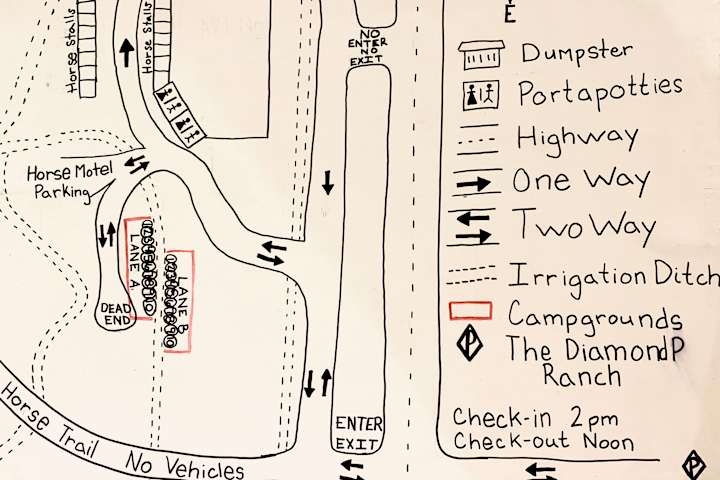 E
Horse Stalls
Horse Stalls
NO
ENTER
NO
EXIT
Dumpster
Portapotties
Highway
One Way
Two Way
Irrigation Ditch
Campgrounds
The Diamond P
Ranch
Check-in 2pm
Check-out Noon
Horse Motel
Parking
LANE A
LANE B
DEAD
END
ENTER
EXIT
Horse Trail No Vehicles
P
P